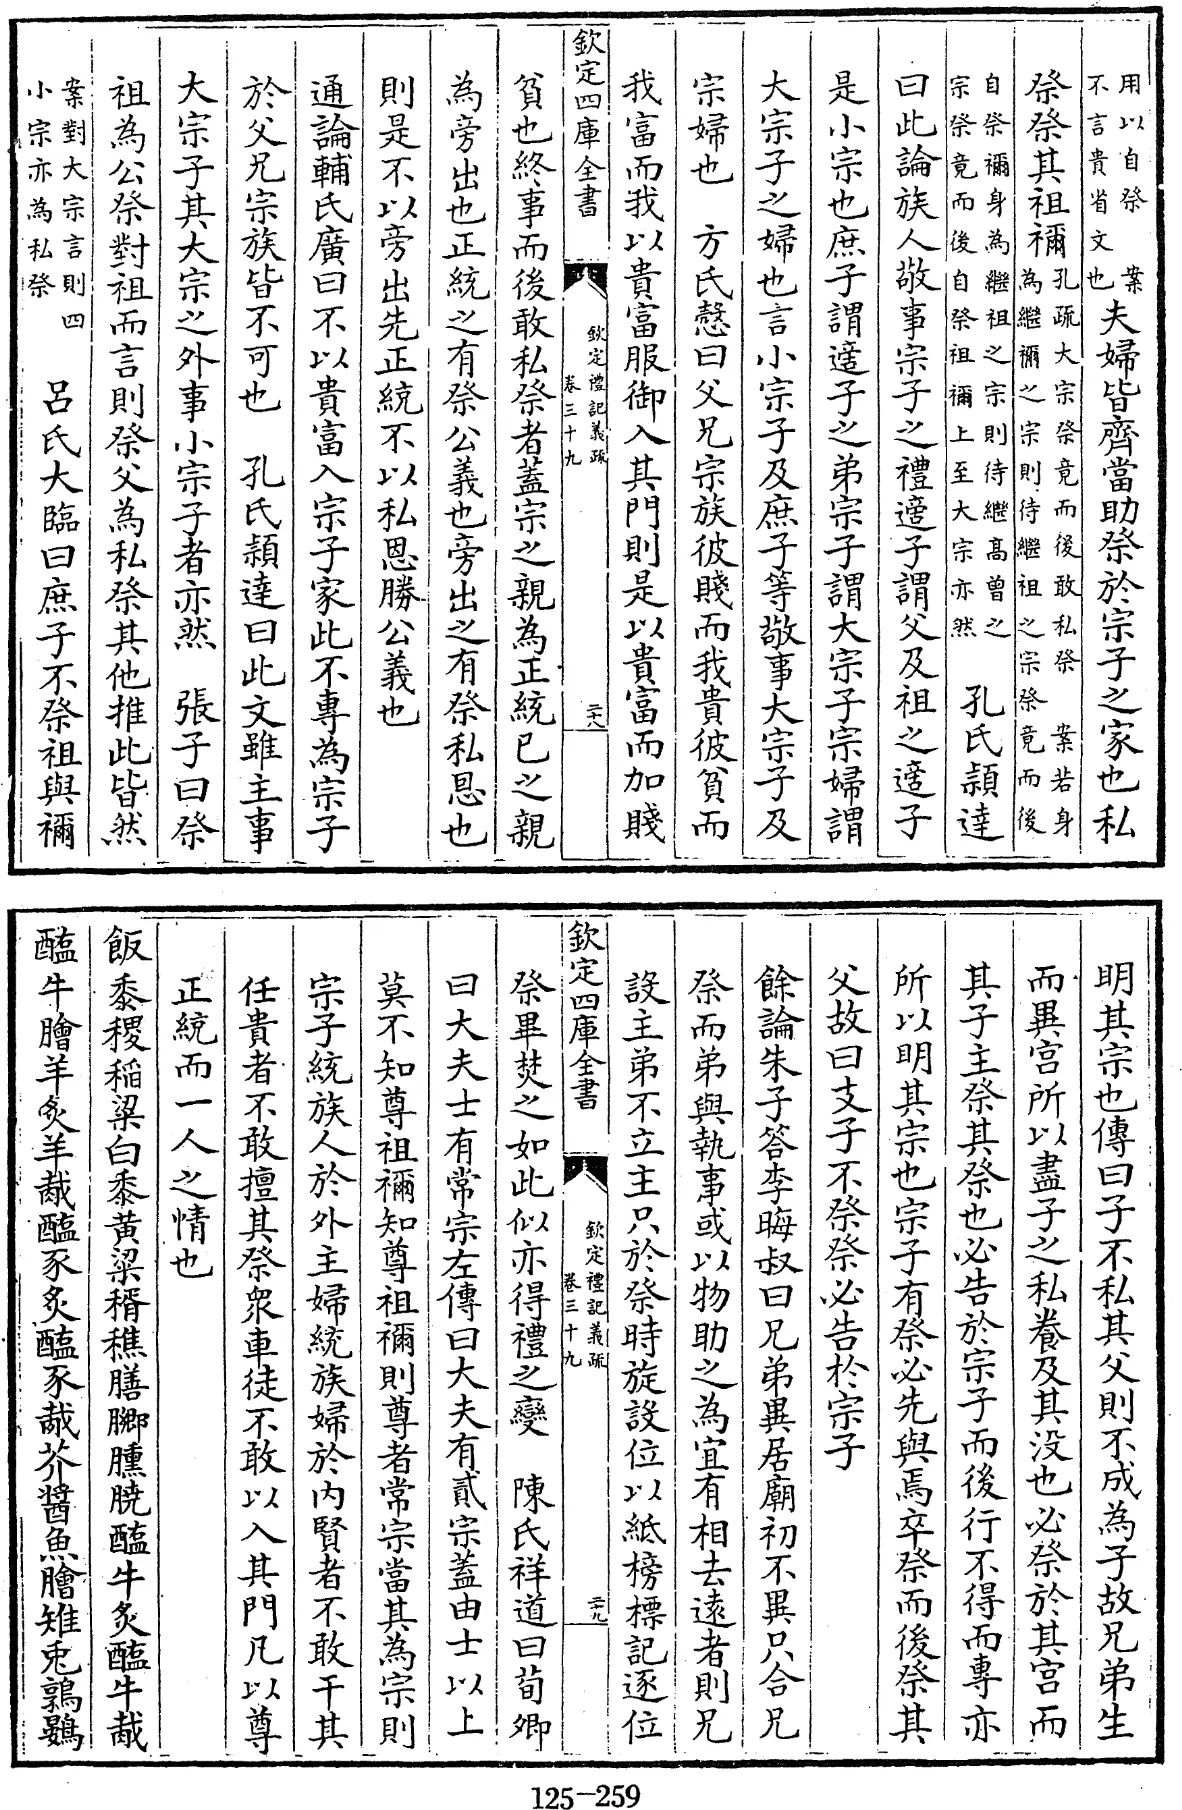 用以自祭　案
不言貴省文也
夫婦皆齊當助祭於宗子之家也私
祭祭其祖禰
孔疏大宗祭竟而後敢私祭　案若身
為繼禰之宗則待繼祖之宗祭竟而後
自祭禰身為繼祖之宗則待繼高曾之
宗祭竟而後自祭祖禰上至大宗亦然
孔氏頴達
曰此論族人敬事宗子之禮適子謂父及祖之適子
是小宗也庶子謂適子之弟宗子謂大宗子宗婦謂
大宗子之婦也言小宗子及庶子等敬事大宗子及
宗婦也　方氏慤曰父兄宗族彼賤而我貴彼貧而
我富而我以貴富服御入其門則是以貴富而加賤
欽定四庫全書
欽定禮記義疏
卷三十九
二十八
貧也終事而後敢私祭者蓋宗之親為正統已之親
為旁出也正統之有祭公義也旁出之有祭私恩也
則是不以旁出先正統不以私恩勝公義也
通論輔氏廣曰不以貴富入宗子家此不專為宗子
於父兄宗族皆不可也　孔氏頴達曰此文雖主事
大宗子其大宗之外事小宗子者亦然　張子曰祭
祖為公祭對祖而言則祭父為私祭其他推此皆然
案對大宗言則四
小宗亦為私祭
呂氏大臨曰庶子不祭祖與禰
明其宗也傳曰子不私其父則不成為子故兄弟生
而異宫所以盡子之私養及其没也必祭於其宫而
其子主祭其祭也必告於宗子而後行不得而專亦
所以明其宗也宗子有祭必先與焉卒祭而後祭其
父故曰支子不祭祭必告於宗子
餘論朱子答李晦叔曰兄弟異居廟初不異只合兄
祭而弟與執事或以物助之為宜有相去遠者則兄
設主弟不立主只於祭時旋設位以紙榜標記逐位
欽定四庫全書
欽定禮記義疏
卷三十九
二十九
祭畢焚之如此似亦得禮之變　陳氏祥道曰荀卿
曰大夫士有常宗左傳曰大夫有貳宗蓋由士以上
莫不知尊祖禰知尊祖禰則尊者常宗當其為宗則
宗子統族人於外主婦統族婦於内賢者不敢干其
任貴者不敢擅其祭衆車徒不敢以入其門凡以尊
正統而一人之情也
飯黍稷稻粱白黍黄粱稰穛膳膷臐膮醢牛炙醢牛胾
醢牛膾羊炙羊胾醢豕炙醢豕胾芥醤魚膾雉兎鶉鷃
125-259